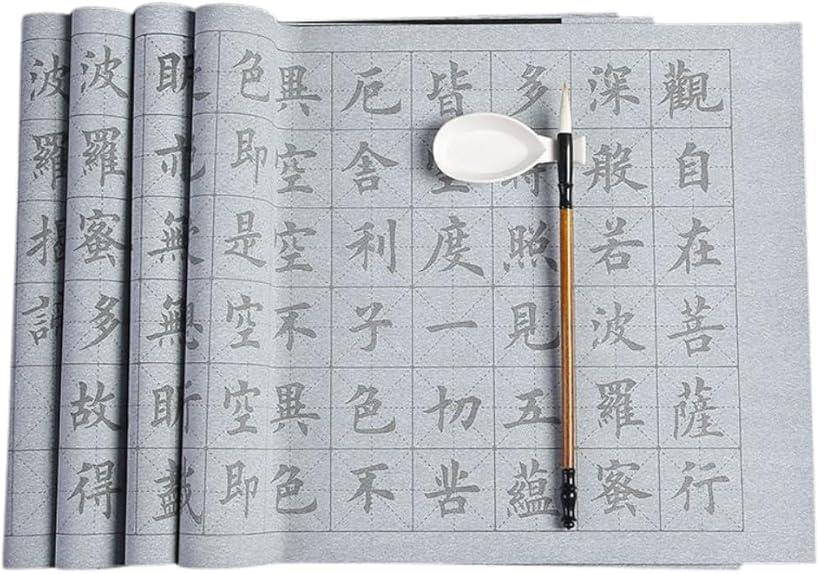 觀自在菩薩行
深般若波羅蜜
多照見五蘊
皆度一切苦
厄舍利子色不
異空空不異色
色即是空空即
眀亦無無眀盡
波羅蜜多故得
波羅揭